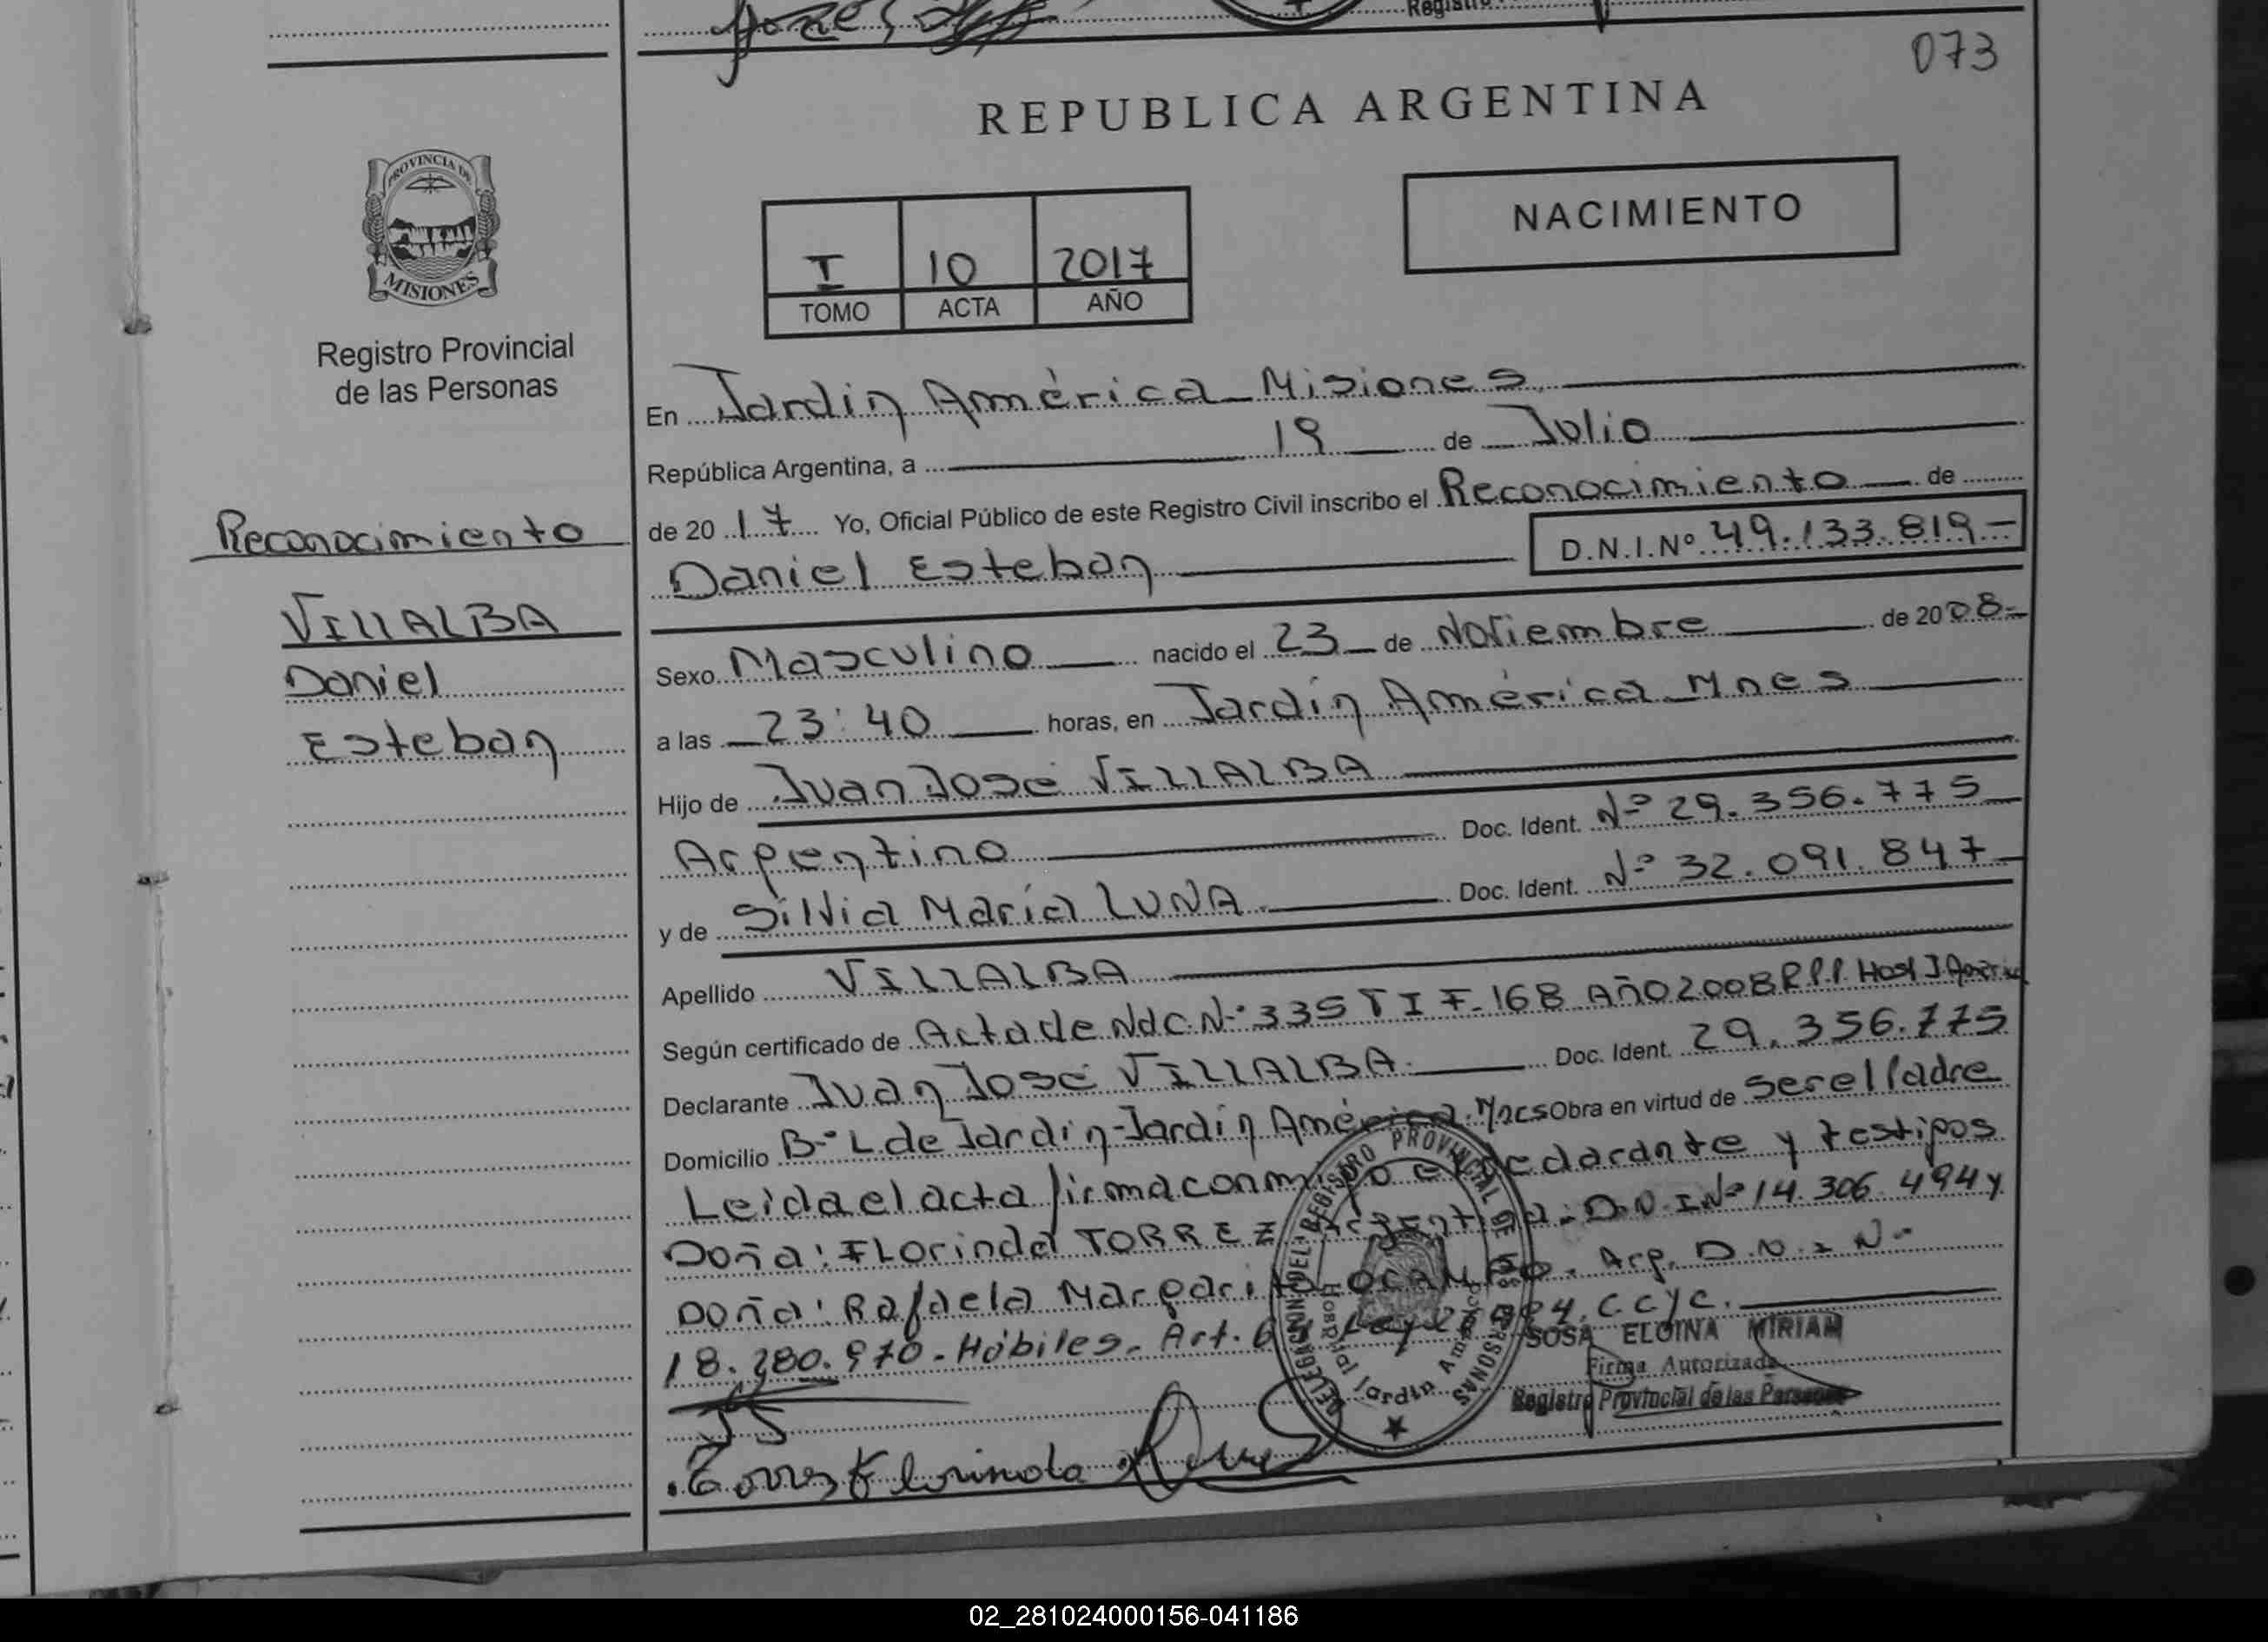 Registr
073
REPUBLICA ARGENTINA
PROVINCIA DE
MISIONES
Registro Provincial
de las Personas
I 10 2017
TOMO ACTA AÑO
NACIMIENTO
Reconocimiento
VILLALBA
Daniel
Esteban
En Jardín América - Misiones
República Argentina, a 19 de Julio
de 20 17 Yo, Oficial Público de este Registro Civil inscribo el Reconocimiento de
Daniel Esteban D.N.I.Nº 49.133.819-
Sexo Masculino nacido el 23 de Noviembre de 20 08-
a las 23:40 horas, en Jardín América Mnes
Hijo de Juan José VILLALBA
Argentino Doc. Ident. Nº 29.356.775
y de Silvia María LUNA Doc. Ident. Nº 32.091.847
Apellido VILLALBA
Según certificado de Acta de Nac. Nº 335 T I F. 168 Año 2008 R.P.P. Hosp J. América
Declarante Juan José VILLALBA. Doc. Ident. 29.356.775
Domicilio Bº L. de Jardín - Jardín América. Mnes Obra en virtud de ser el Padre
Leída el acta firma conmigo el declarante y testigos
Doña: Florinda TORREZ Argentina. D.N.I Nº 14.306.494 y
Doña: Rafaela Margarita OCAMPO. Arg. D.N.I Nº
18.280.970. Hábiles. Art. Ley C.C y C.
DELEGACION DEL REGISTRO PROVINCIAL DE LAS PERSONAS
Hospital Jardín América
SOSA ELOINA MIRIAM
Firma Autorizada
Registro Provincial de las Personas
Torres Florinda
02_281024000156-041186